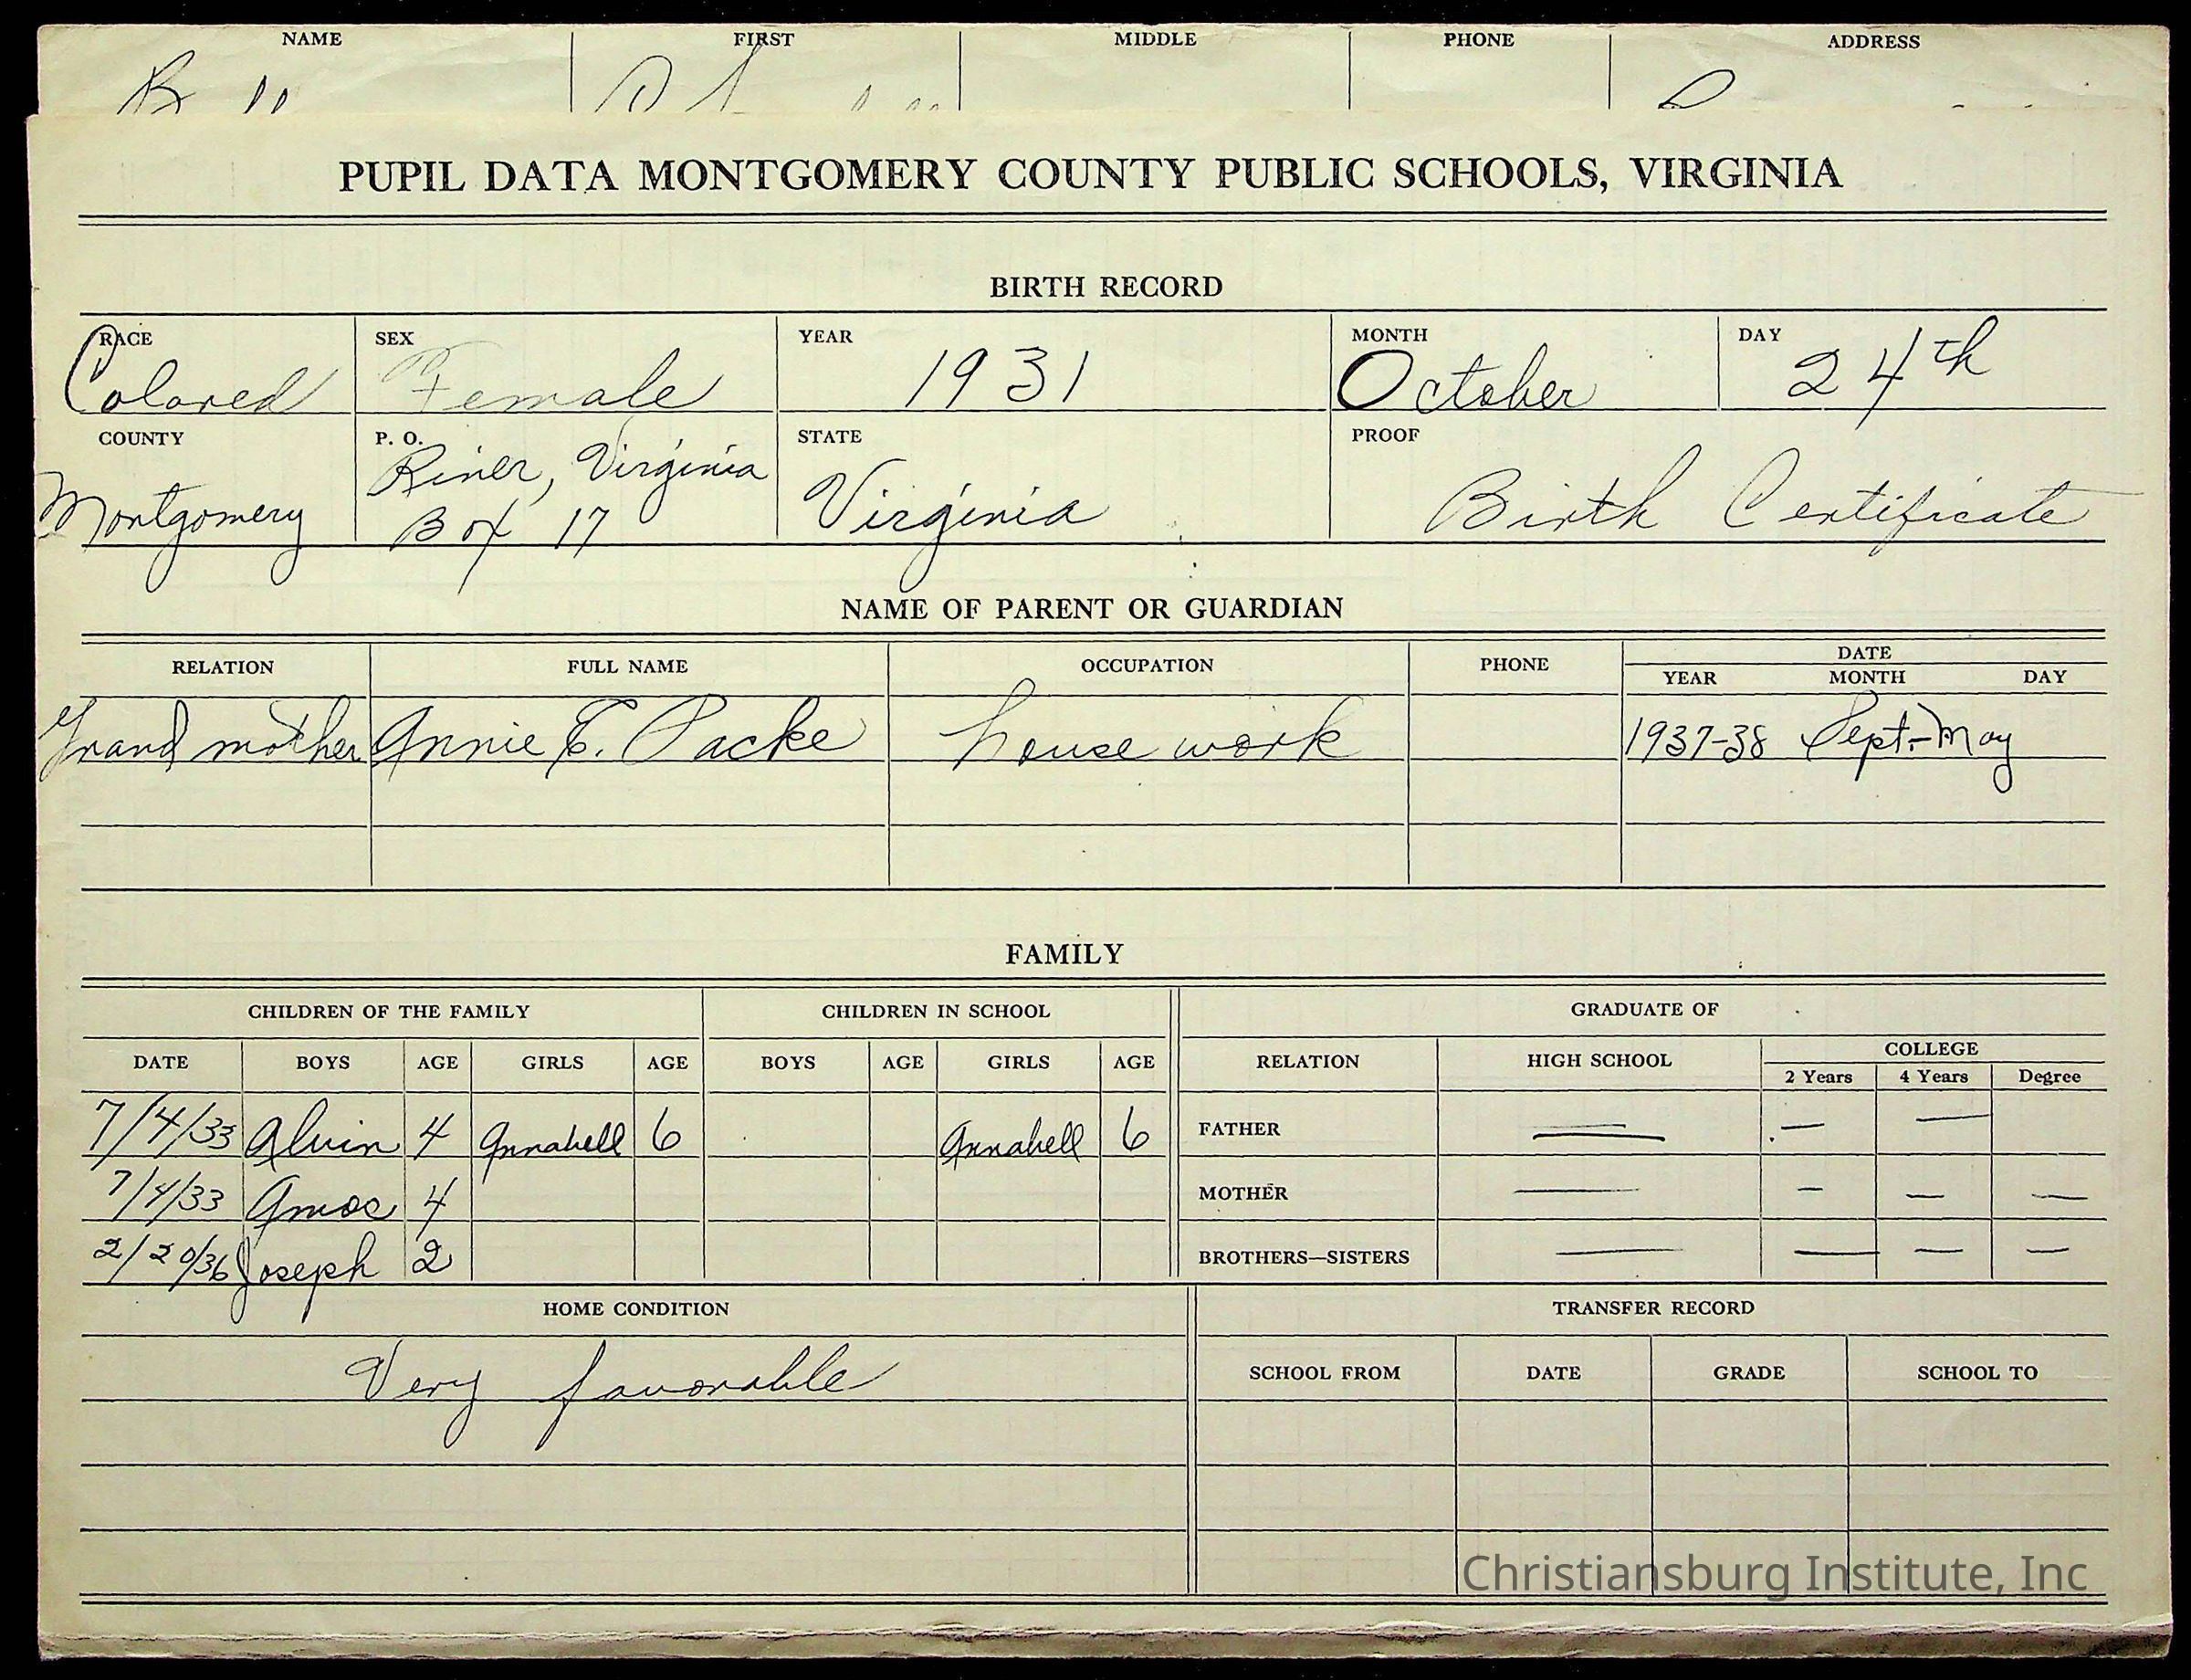 NAME FIRST MIDDLE PHONE ADDRESS
PUPIL DATA MONTGOMERY COUNTY PUBLIC SCHOOLS, VIRGINIA
BIRTH RECORD
RACE SEX YEAR MONTH DAY
Colored Female 1931 October 24th
COUNTY P. O. STATE PROOF
Montgomery Riner, Virginia Virginia Birth Certificate
Box 17
NAME OF PARENT OR GUARDIAN
RELATION FULL NAME OCCUPATION PHONE DATE
YEAR MONTH DAY
Grand mother Annie E. Packe house work 1937-38 Sept.-May
FAMILY
CHILDREN OF THE FAMILY CHILDREN IN SCHOOL GRADUATE OF
DATE BOYS AGE GIRLS AGE BOYS AGE GIRLS AGE RELATION HIGH SCHOOL COLLEGE
2 Years 4 Years Degree
7/4/33 Alvin 4 Annabell 6 Annabell 6 FATHER — — —
7/4/33 Amos 4 MOTHER — — — —
2/20/36 Joseph 2 BROTHERS—SISTERS — — — —
HOME CONDITION TRANSFER RECORD
Very favorable
SCHOOL FROM DATE GRADE SCHOOL TO
Christiansburg Institute, Inc